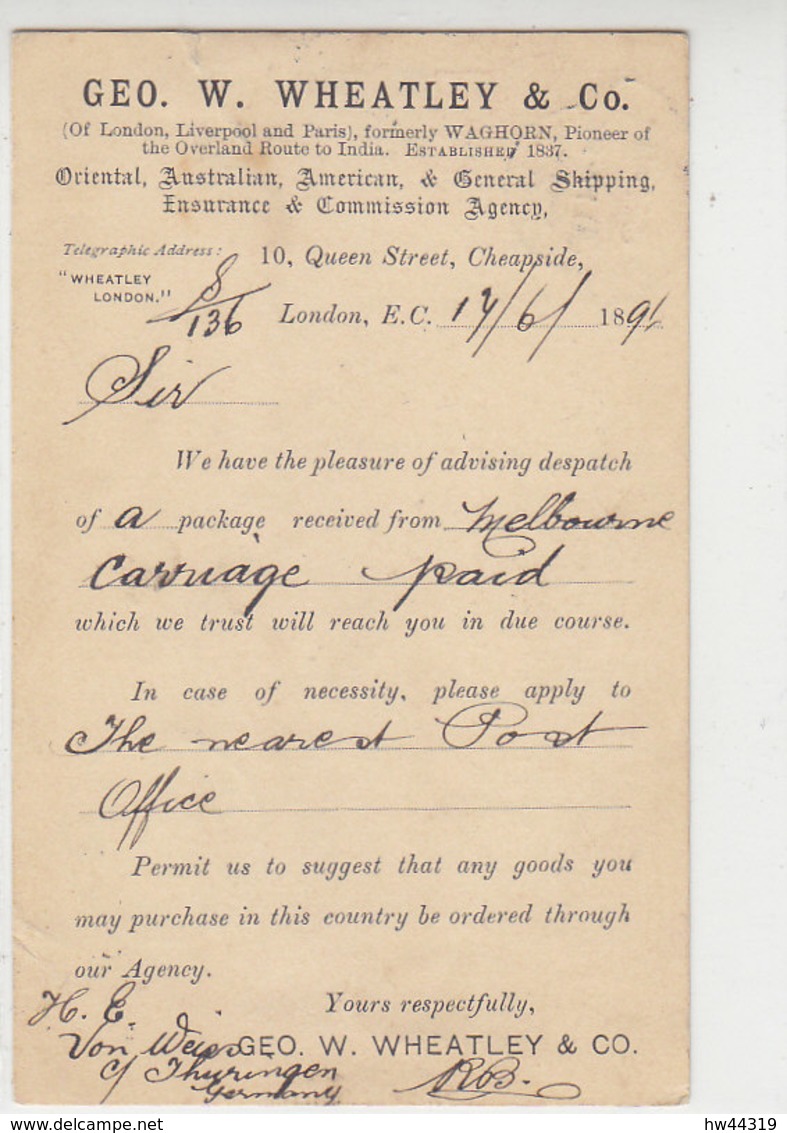 GEO. W. WHEATLEY & Co.
(Of London, Liverpool and Paris), formerly WAGHORN, Pioneer of
the Overland Route to India. ESTABLISHED 1837.
Oriental, Australian, American, & General Shipping,
Insurance & Commission Agency,
Telegraphic Address:
"WHEATLEY
LONDON."
10, Queen Street, Cheapside,
S/136
London, E.C. 17/6/ 1891
Sir
We have the pleasure of advising despatch
of a package received from Melbourne
Carriage paid
which we trust will reach you in due course.
In case of necessity, please apply to
The nearest Post
Office
Permit us to suggest that any goods you
may purchase in this country be ordered through
our Agency.
Yours respectfully,
GEO. W. WHEATLEY & CO.
RB.
H. E.
Von
c/ Thuringen
Germany
hw44319